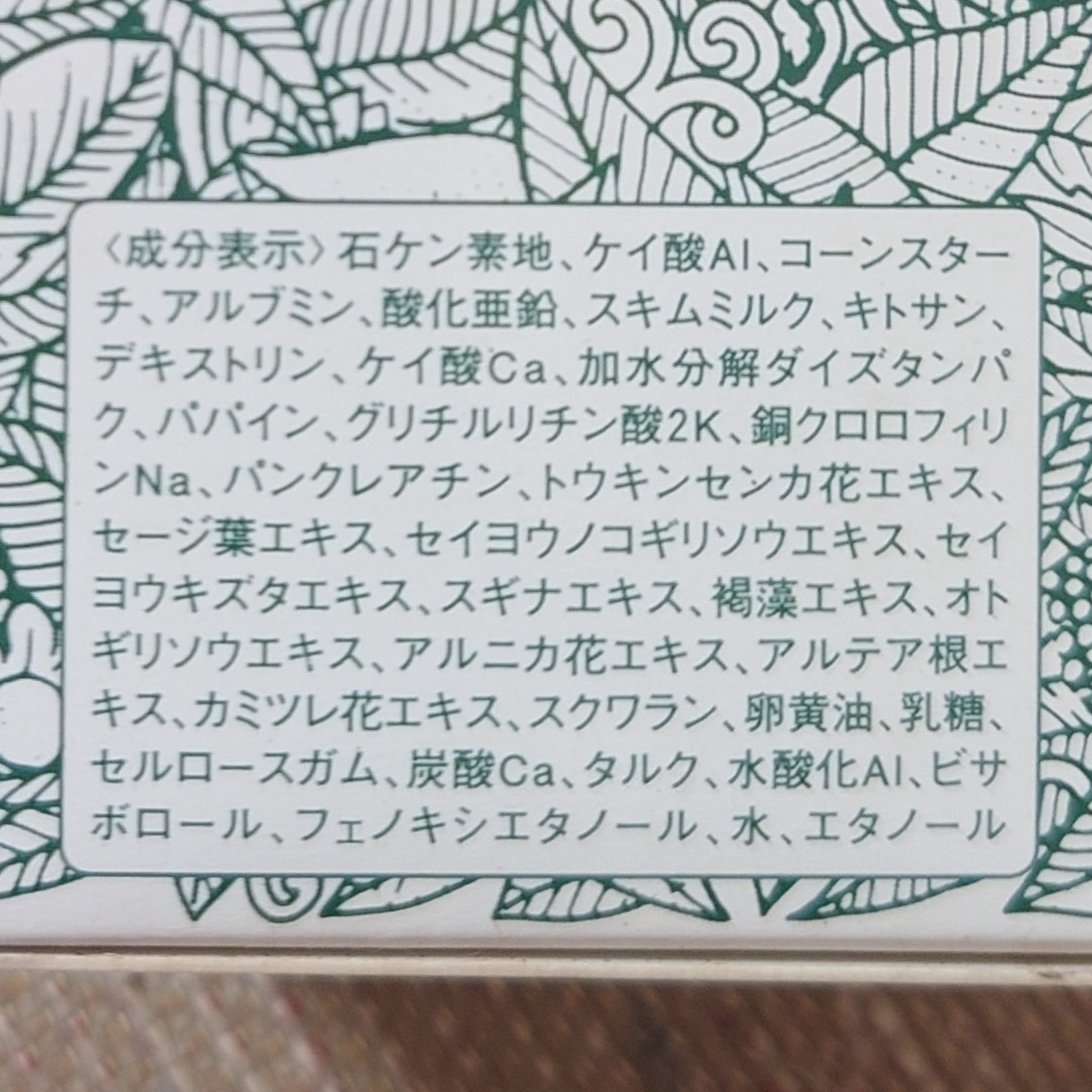 〈成分表示〉石ケン素地、ケイ酸Al、コーンスター
チ、アルブミン、酸化亜鉛、スキムミルク、キトサン、
デキストリン、ケイ酸Ca、加水分解ダイズタンパ
ク、パパイン、グリチルリチン酸2K、銅クロロフィリ
ンNa、パンクレアチン、トウキンセンカ花エキス、
セージ葉エキス、セイヨウノコギリソウエキス、セイ
ヨウキズタエキス、スギナエキス、褐藻エキス、オト
ギリソウエキス、アルニカ花エキス、アルテア根エ
キス、カミツレ花エキス、スクワラン、卵黄油、乳糖、
セルロースガム、炭酸Ca、タルク、水酸化Al、ビサ
ボロール、フェノキシエタノール、水、エタノール